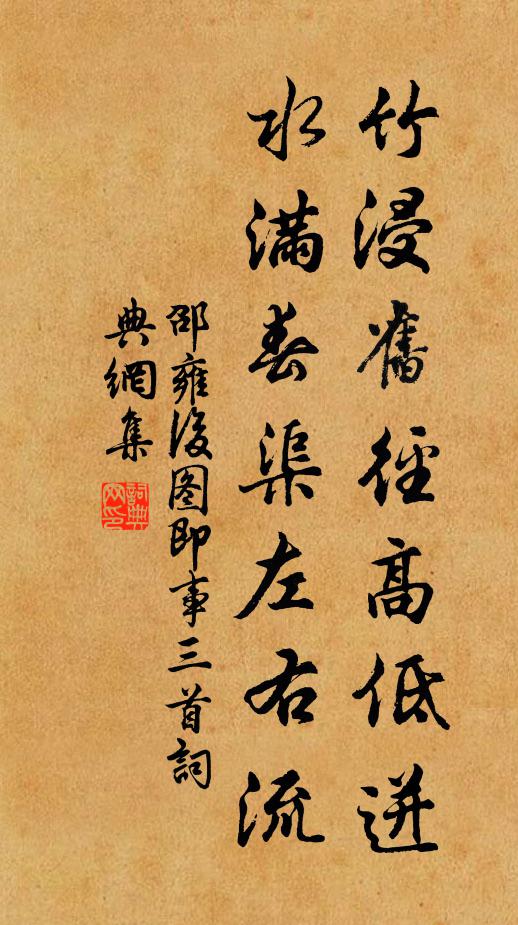 竹浸舊徑高低迸
水滿春渠左右流
邵雍後图即事三首詞
典網集
詞典
网印